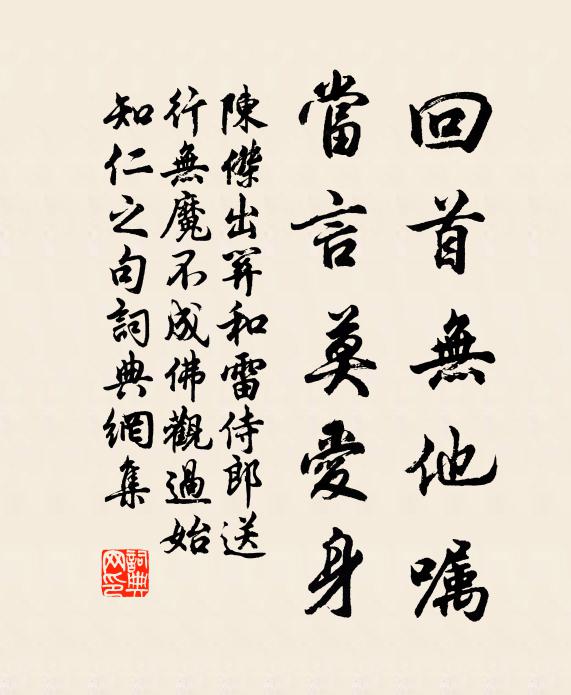 回首無他嘱
當言莫愛身
陳傑出羿和雷侍郎送
行無魔不成佛觀過始
知仁之句詞典網集
詞典
网印